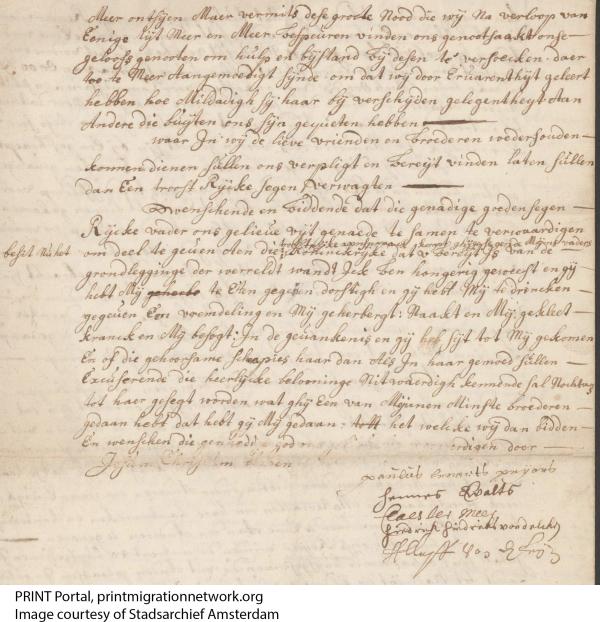 Meer ontsijen Maer vermits dese groote Nood die wij Na verloop van
Eenige tijt Meer en Meer bespeuren vinden ons genootsaakt onse
geloofs genooten om hulp en bijstand bij desen te versoecken daer
toe te Meer Aangemoedigt sijnde om dat wij door Ervarentheyt geleert
hebben hoe Mildadigh sij haar bij verscheyden gelegentheyt Aan
Andere die buyten ons sijn gequeten hebben
waar In wij de lieve vrienden en broederen wederhouden
konnen dienen sullen ons verpligt en Bereijt vinden laten sullen
dan Een troost Rijcke segen verwagten
wenschende en biddende dat die genadige goedensegen
Rijcke vader ons gelieve uijt genaede te samen te verwaardigen
om deel te geven Aen die koninckrijke dat u bereijt Is van de
komt ghij gesegende Mijns vaders
besit Nu het
grondlegginge der werrelt want Ick ben hongerig geweest en gij
hebt Mij te Eten gegeven dorstigh en gij hebt Mij te drincken
gegeven Een vremdeling en Mij geherbergt: Naakt en Mij gekleet
kranck en Mij besogt: In de gevankenis en gij sijt tot Mij gekomen
En of die gehoorsame schaapies haar dan Als In haar gemoed sullen
Excuserende die heerlijcke belooninge Nit waerdigh kennende sal Nochtans
tot haer gesegt worden wat ghij Een van Mijnen Minste broederen
gedaan hebt dat hebt gij Mij gedaan: het welcke wij dan bidden
En wenschen die god digen door
Jesum Christum
paulus
hennes Ewalts
Claes
hindrick hindricks
van
PRINT Portal, printmigrationnetwork.org
Image courtesy of Stadsarchief Amsterdam